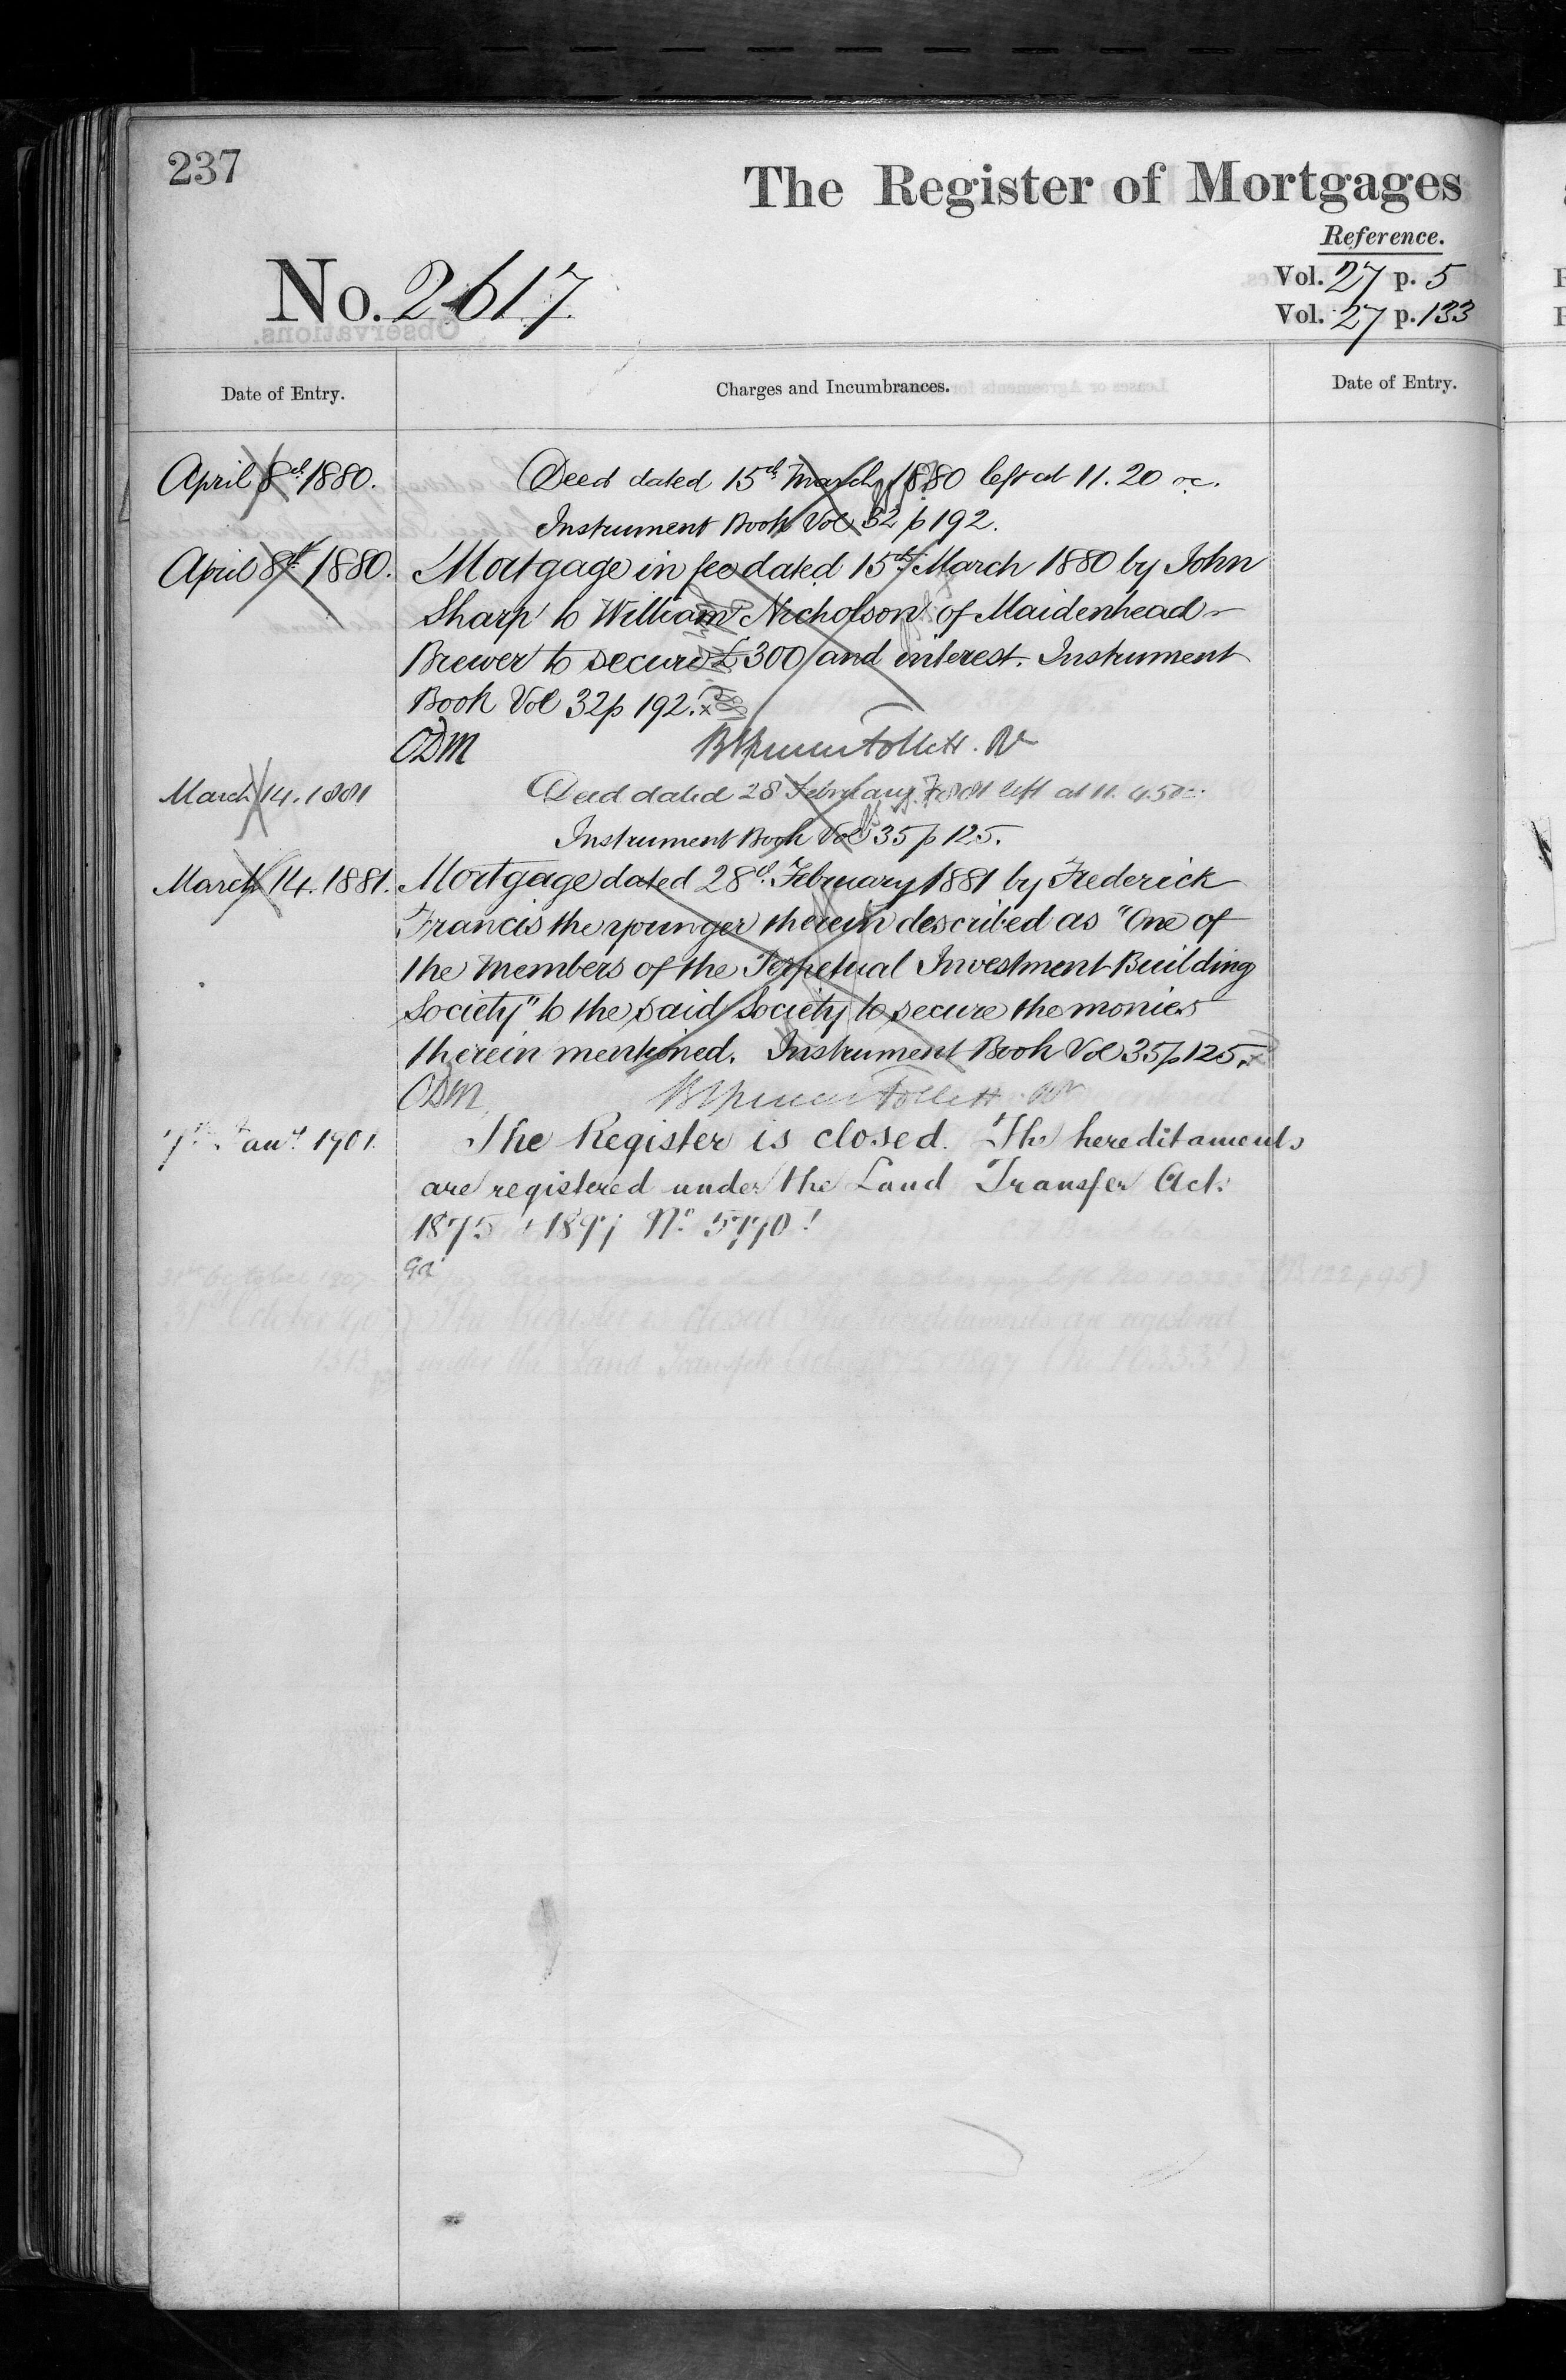 237
The Register of Mortgages
Reference.
No. 2617.
Vol. 27 p. 5
Vol. 27 p. 133
Date of Entry.
Charges and Incumbrances.
Date of Entry.
April 8th 1880.
Deed dated 15th March 1880 left at 11.20 oc.
Instrument Book Vol 32 p 192.
April 8th 1880.
Mortgage in fee dated 15th March 1880 by John
Sharp to William Nicholson of Maidenhead
Brewer to secure £300 and interest. Instrument
Book Vol 32 p 192.
ODM
March 14. 1881
Deed dated 28 February 1881 left at 11.45 oc.
Instrument Book Vol 35 p 125.
March 14. 1881.
Mortgage dated 28th February 1881 by Frederick
Francis the younger therein described as "One of
the Members of the Perpetual Investment Building
Society" to the said Society to secure the monies
therein mentioned. Instrument Book Vol 35 p 125.
ODM
7th Jany 1901.
The Register is closed. The hereditaments
are registered under the Land Transfer Acts
1875 & 1897 No
31st October
The Register is closed The hereditaments are registered
under the Land Transfer Acts 1875 & 1897